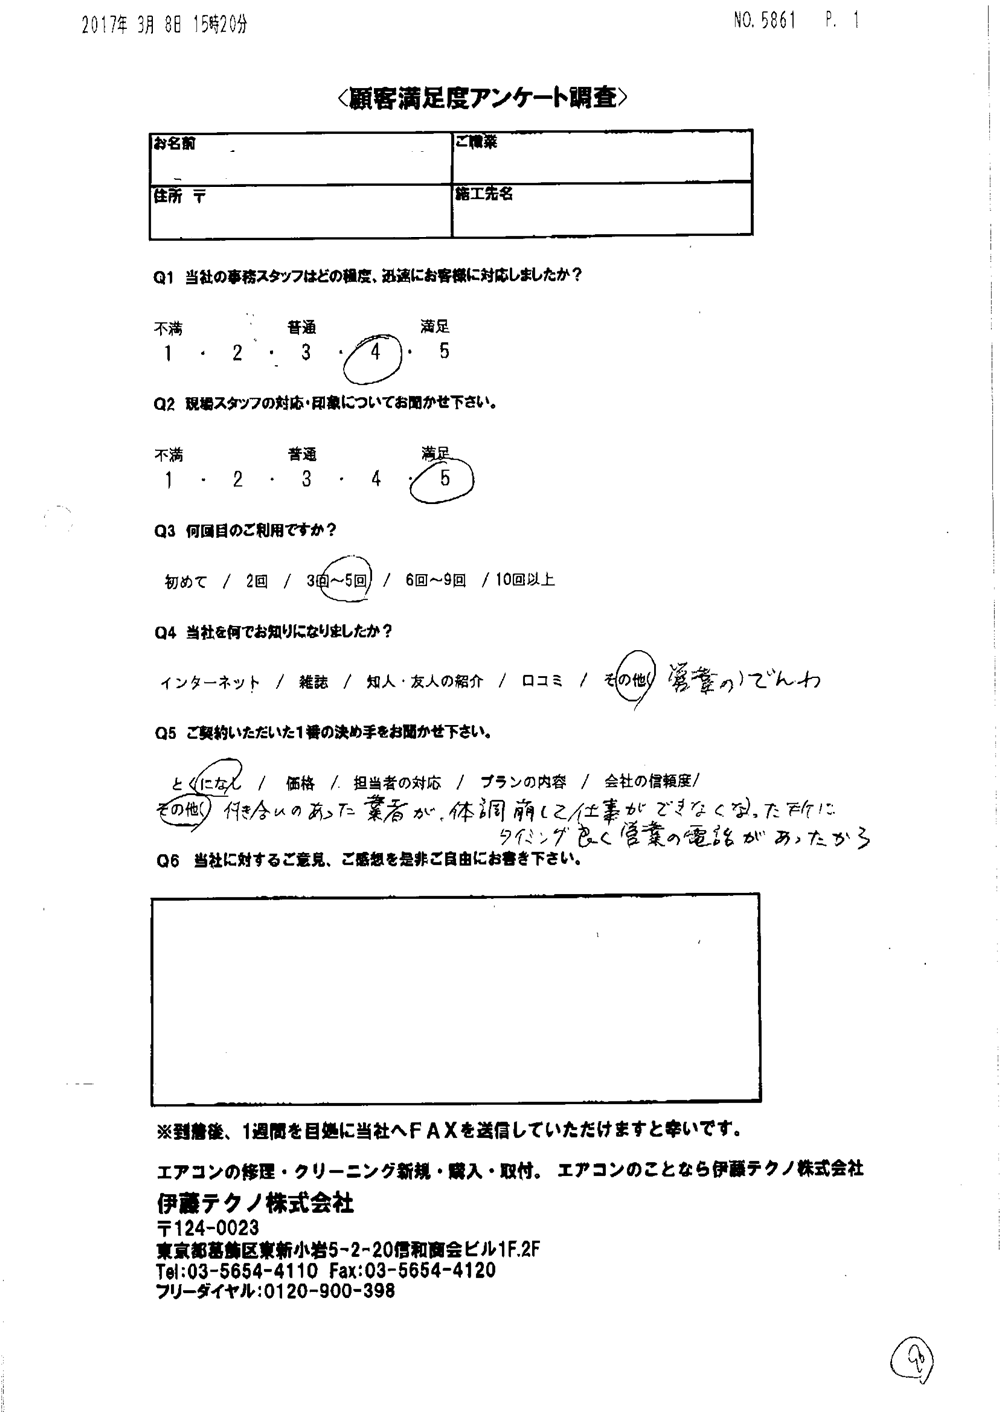 2017年 3月 8日 15時20分 NO.5861 P. 1
<顧客満足度アンケート調査>
お名前 ご職業
住所 〒 施工先名
Q1 当社の事務スタッフはどの程度、迅速にお客様に対応しましたか？
不満 普通 満足
1 ・ 2 ・ 3 ・ 4 ・ 5
Q2 現場スタッフの対応・印象についてお聞かせ下さい。
不満 普通 満足
1 ・ 2 ・ 3 ・ 4 ・ 5
Q3 何回目のご利用ですか？
初めて / 2回 / 3回～5回 / 6回～9回 / 10回以上
Q4 当社を何でお知りになりましたか？
インターネット / 雑誌 / 知人・友人の紹介 / 口コミ / その他( 営業の)でんわ
Q5 ご契約いただいた1番の決め手をお聞かせ下さい。
とくになし / 価格 / 担当者の対応 / プランの内容 / 会社の信頼度/
その他( 付き合いのあった業者が、体調崩して仕事ができなくなった所に
タイミング良く営業の電話があったから
Q6 当社に対するご意見、ご感想を是非ご自由にお書き下さい。
※到着後、1週間を目処に当社へFAXを送信していただけますと幸いです。
エアコンの修理・クリーニング新規・購入・取付。 エアコンのことなら伊藤テクノ株式会社
伊藤テクノ株式会社
〒124-0023
東京都葛飾区東新小岩5-2-20信和商会ビル1F.2F
Tel:03-5654-4110 Fax:03-5654-4120
フリーダイヤル:0120-900-398